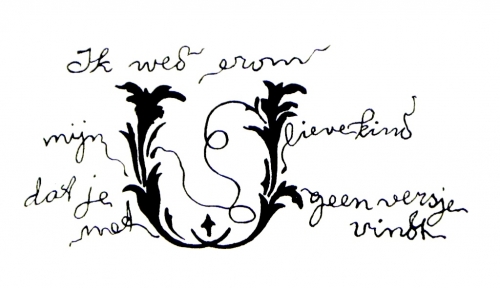 Ik wed erom
mijn lieve kind
dat je geen versje
met U vindt